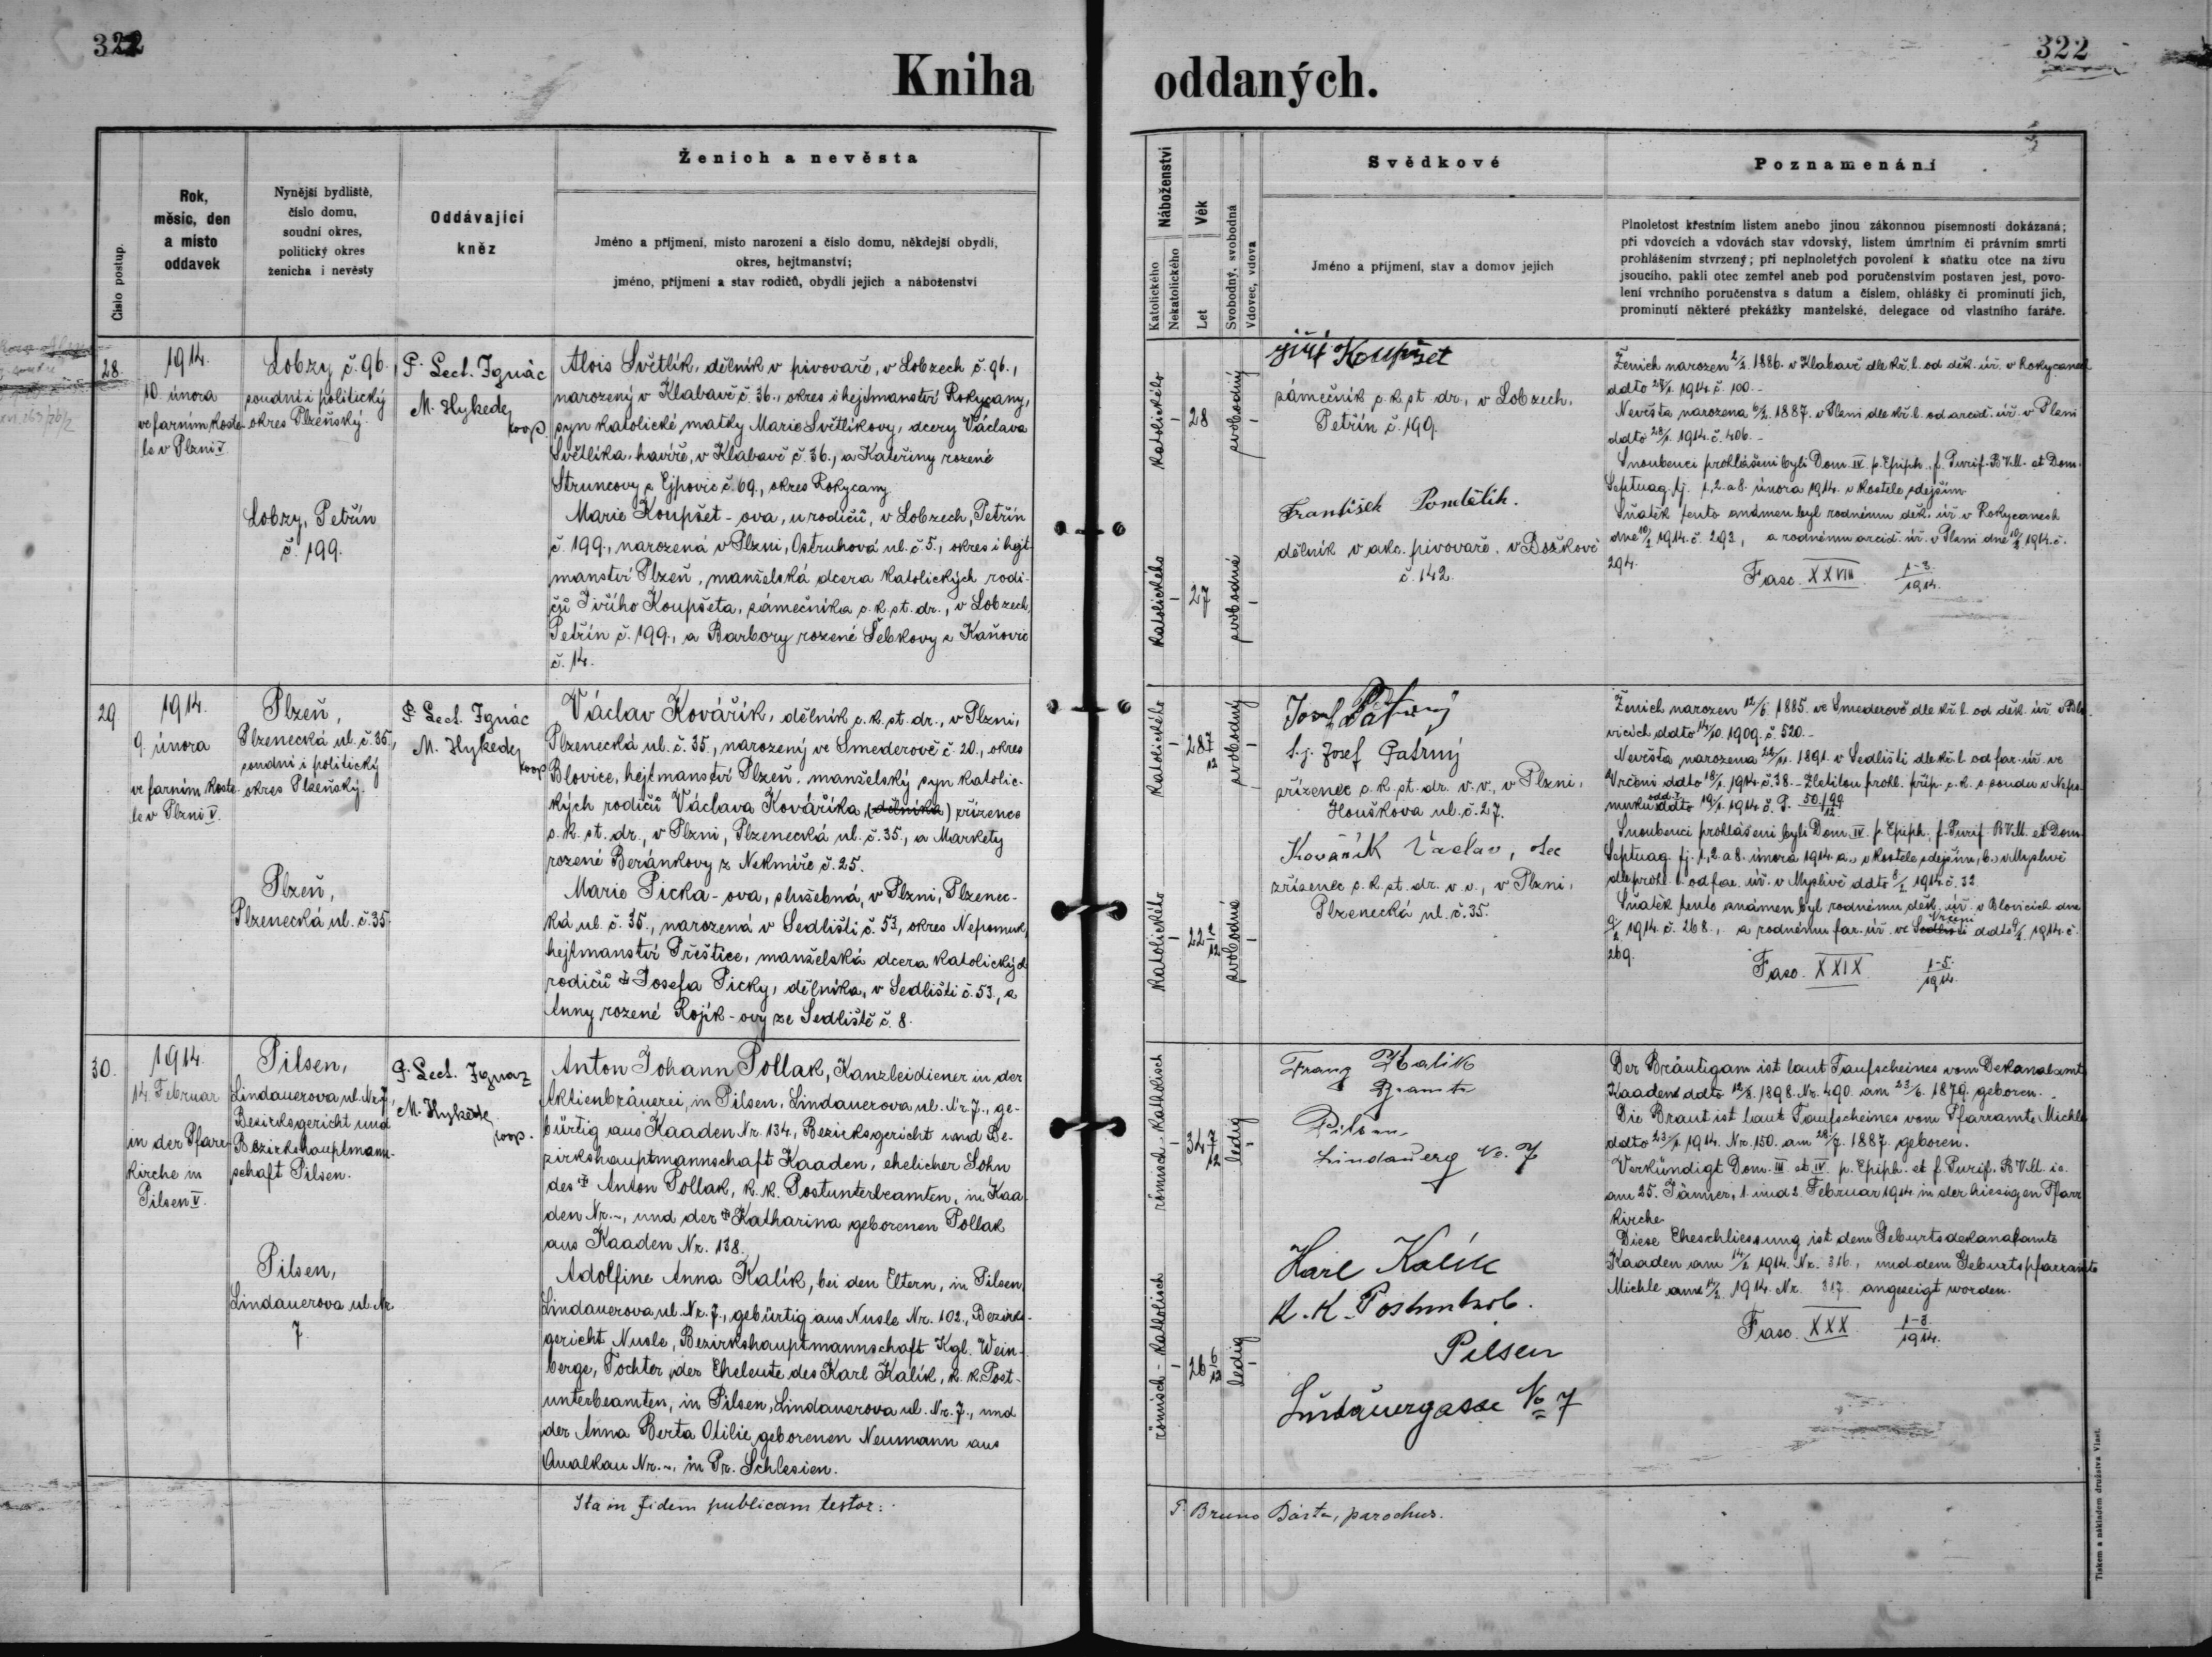 322
322
Kniha
oddaných.
Číslo postup.
Rok,
měsíc, den
a místo
oddavek
Nynější bydliště,
číslo domu,
soudní okres,
politický okres
ženicha i nevěsty
Oddávající
kněz
Ženich a nevěsta
Jméno a příjmení, místo narození a číslo domu, někdejší obydlí,
okres, hejtmanství;
jméno, příjmení a stav rodičů, obydlí jejich a náboženství
Náboženství
Katolického
Nekatolického
Věk
Let
Svobodný, svobodná
Vdovec, vdova
Svědkové
Jméno a příjmení, stav a domov jejich
Poznamenání
Plnoletost křestním listem anebo jinou zákonnou písemností dokázaná;
při vdovcích a vdovách stav vdovský, listem úmrtním či právním smrti
prohlášením stvrzený; při neplnoletých povolení k sňatku otce na živu
jsoucího, pakli otec zemřel aneb pod poručenstvím postaven jest, povo-
lení vrchního poručenstva s datum a číslem, ohlášky či prominutí jich,
prominutí některé překážky manželské, delegace od vlastního faráře.
28.
1914.
10. února
ve farním koste-
le v Plzni V.
Lobzy č. 96.,
soudní i politický
okres Plzeňský.
Lobzy, Petřín
č. 199.
P. Lect. Ignác
M. Hykede,
koop.
Alois Světlík, dělník v pivovaře, v Lobzech č. 96.,
narozený v Klabavě č. 36., okres i hejtmanství Rokycany,
syn katolické matky Marie Světlíkovy, dcery Václava
Světlíka, havíře, v Klabavě č. 36., a Kateřiny rozené
Struncovy z Ejpovic č. 69., okres Rokycany.
Marie Koupšet-ova, u rodičů, v Lobzech, Petřín
č. 199., narozená v Plzni, Ostruhová ul. č. 5., okres i hejt-
manství Plzeň, manželská dcera katolických rodi-
čů Jiřího Koupšeta, zámečníka c. k. st. dr., v Lobzech,
Petřín č. 199., a Barbory rozené Šebkovy z Kaňovic
č. 14.
katolického
28
svobodný
katolického
27
svobodná
Jiří Koupšet
zámečník c. k. st. dr., v Lobzech,
Petřín č. 199.
František Pondělík.
dělník v akc. pivovaře, v Božkově
č. 142.
Ženich narozen 2/2. 1886. v Klabavě dle kř. l. od děk. úř. v Rokycanech
ddto 27/1. 1914. č. 100.-
Nevěsta narozena 6/2. 1887. v Plzni dle kř. l. od arcid. úř. v Plzni
ddto 28/1. 1914. č. 406.-
Snoubenci prohlášeni byli Dom. IV. p. Epiph., f. Purif. B.V.M. et Dom.
Septuag. tj. 1., 2. a 8. února 1914. v kostele zdejším.
Sňatek tento oznámen byl rodnému děk. úř. v Rokycanech
dne 10/2 1914. č. 293, a rodnému arcid. úř. v Plzni dne 10/2 1914. č.
294.
Fasc. XXVIII. 1-3. 1914.
29
1914.
9. února
ve farním koste-
le v Plzni V.
Plzeň,
Plzenecká ul. č. 35.,
soudní i politický
okres Plzeňský.
Plzeň,
Plzenecká ul. č. 35
P. Lect. Ignác
M. Hykede,
koop.
Václav Kovářík, dělník c. k. st. dr., v Plzni,
Plzenecká ul. č. 35., narozený ve Smederově č. 20., okres
Blovice, hejtmanství Plzeň, manželský syn katolic-
kých rodičů Václava Kováříka (dělníka) zřízence
c. k. st. dr., v Plzni, Plzenecká ul. č. 35., a Markety
rozené Beránkovy z Nekmíře č. 25.
Marie Picka-ova, služebná, v Plzni, Plzenec-
ká ul. č. 35., narozená v Sedlišti č. 53., okres Nepomuk,
hejtmanství Přeštice, manželská dcera katolických
rodičů ‡ Josefa Picky, dělníka, v Sedlišti č. 53., a
Anny rozené Rojík-ovy ze Sedliště č. 8.
katolického
28 7/12
svobodný
katolického
22 2/12
svobodná
Josef Pátrný
t. j. Josef Patrný
zřízenec c. k. st. dr. v. v., v Plzni,
Houškova ul. č. 27.
Kovářík Václav, otec
zřízenec c. k. st. dr. v. v., v Plzni,
Plzenecká ul. č. 35.
Ženich narozen 12/6. 1885. ve Smederově dle kř. l. od děk. úř. v Blo-
vicích ddto 14/10. 1909. č. 520.-
Nevěsta narozena 24/11. 1891. v Sedlišti dle kř. l. od far. úř. ve
Vrčeni ddto 18/1. 1914. č. 38.- Zletilou prohl. příp. c. k. s soudu v Nepo-
muku odd. I. ddto 19/1. 1914. č. P. 50/99 12.
Snoubenci prohlášeni byli Dom. IV. p. Epiph., f. Purif. B.V.M. et Dom
Septuag. tj. 1., 2. a 8. února 1914. a., v kostele zdejším, b., v Myslivě
dle prohl. l. od far. úř. v Myslivě ddto 8/2 1914. č. 32
Sňatek tento oznámen byl rodnému děk. úř. v Blovicích dne
9/2 1914. č. 268., a rodnému far. úř. ve Sedlišti Vrčeni ddto 9/2. 1914. č.
269.
Fasc. XXIX. 1-5. 1914.
30.
1914.
14. Februar
in der Pfarr-
kirche in
Pilsen V.
Pilsen,
Lindauerova ul. Nr. 7,
Bezirksgericht und
Bezirkshauptmann-
schaft Pilsen.
Pilsen,
Lindauerova ul. Nr.
7.
P. Lect. Ignaz
M. Hykede,
koop.
Anton Johann Pollak, Kanzleidiener in der
Aktienbräuerei, in Pilsen, Lindauerova ul. Nr. 7., ge-
bürtig aus Kaaden Nr. 134, Bezirksgericht und Be-
zirkshauptmannschaft Kaaden, ehelicher Sohn
des ‡ Anton Pollak, k. k. Postunterbeamten, in Kaa
den Nr.-, und der ‡ Katharina geborenen Pollak
aus Kaaden Nr. 138.
Adolfine Anna Kalík, bei den Eltern, in Pilsen,
Lindauerova ul. Nr. 7., gebürtig aus Nusle Nr. 102., Bezirks-
gericht Nusle, Bezirkshauptmannschaft Kgl. Wein-
berge, Tochter der Eheleute des Karl Kalík, k. k. Post-
unterbeamten, in Pilsen, Lindauerova ul. Nr. 7., und
der Anna Berta Otilie geborenen Neumann aus
Qualkau Nr.-, in Pr. Schlesien.
römisch-katholisch
34 7/12
ledig
römisch-katholisch
26 6/12
ledig
Franz Kalik
Beamte
Pilsen
Lindauerg No. 7
Karl Kalík
K. K. Postuntrb.
Pilsen
Lindauergasse No 7
Der Bräutigam ist laut Taufscheines vom Dekanalamte
Kaaden ddto 12/8. 1898. Nr. 490. am 23/6. 1879. geboren.
Die Braut ist laut Taufscheines vom Pfarramte Michle
ddto 23/1 1914. Nr. 150. am 28/7. 1887. geboren.
Verkündigt Dom. III et IV p. Epiph. et f. Purif. B.V.M. ie.
am 25. Jänner, 1. und 2. Februar 1914. in der hiesigen Pfarr
kirche.
Diese Eheschliessung ist dem Geburtsdekanalamte
Kaaden am 14/2 1914. Nr. 316., und dem Geburtspfarramte
Michle am 14/2. 1914. Nr. 317. angezeigt worden.
Fasc. XXX. 1-3. 1914.
Ita in fidem publicam testor:
P. Bruno Bárta, parochus.
Tiskem a nákladem družstva Vlast.